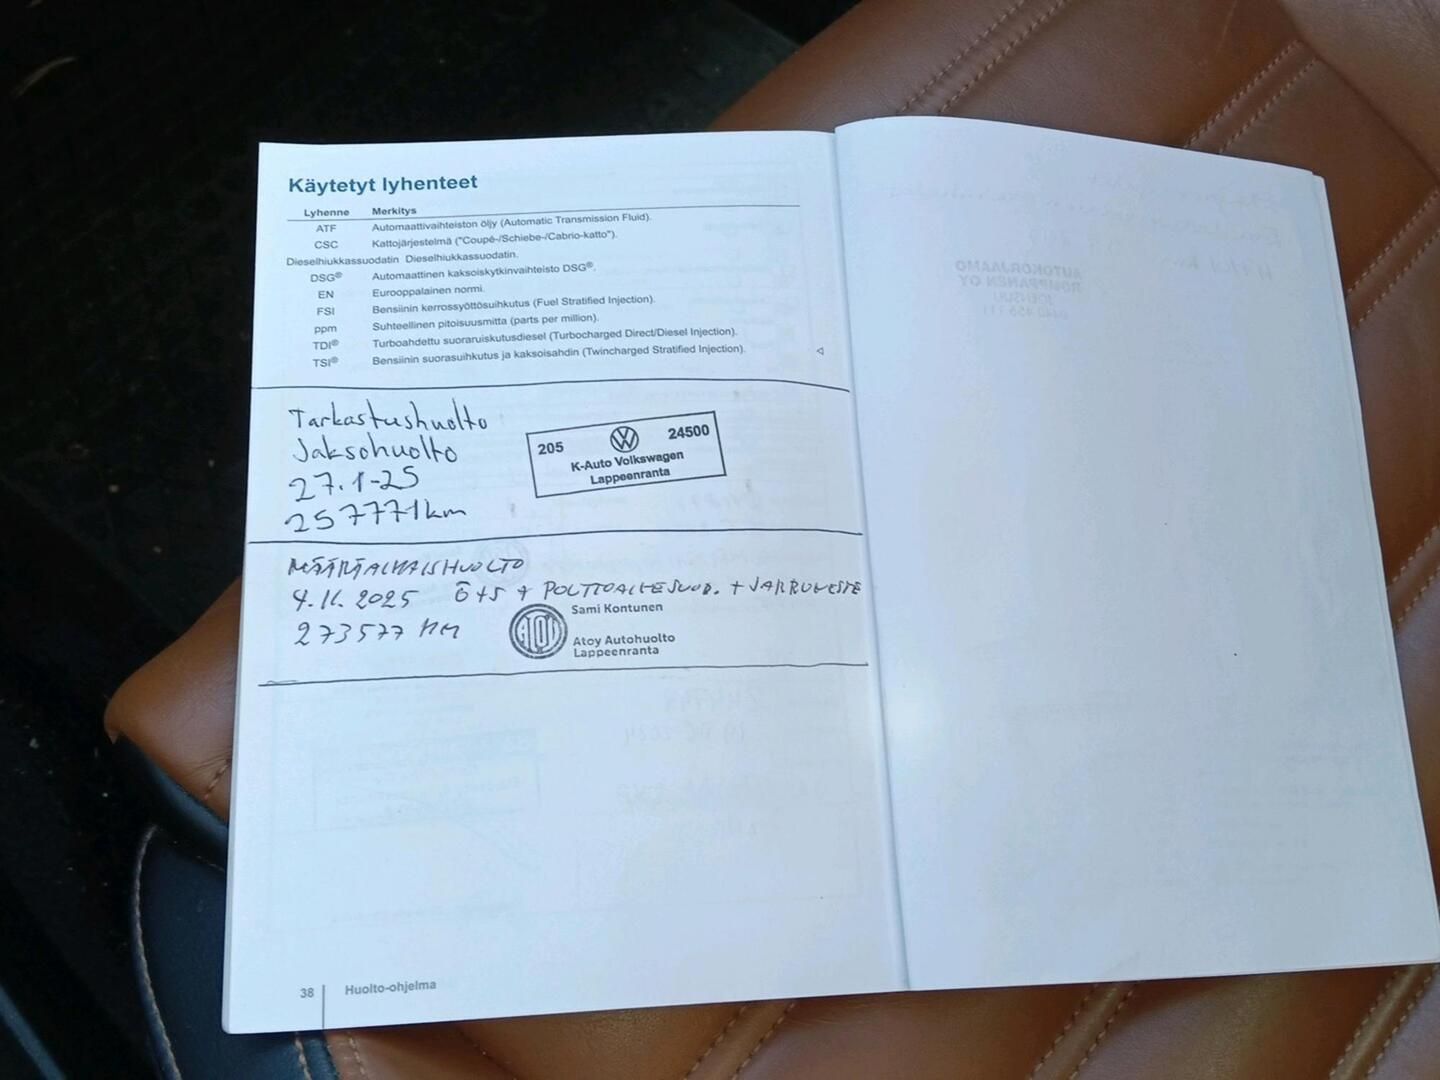 Käytetyt lyhenteet
Lyhenne Merkitys
ATF Automaattivaihteiston öljy (Automatic Transmission Fluid).
CSC Kattojärjestelmä ("Coupé-/Schiebe-/Cabrio-katto").
Dieselhiukkassuodatin Dieselhiukkassuodatin.
DSG® Automaattinen kaksoiskytkinvaihteisto DSG®.
EN Eurooppalainen normi.
FSI Bensiinin kerrossyöttösuihkutus (Fuel Stratified Injection).
ppm Suhteellinen pitoisuusmitta (parts per million).
TDI® Turboahdettu suoraruiskutusdiesel (Turbocharged Direct/Diesel Injection).
TSI® Bensiinin suorasuihkutus ja kaksoisahdin (Twincharged Stratified Injection).
Tarkastushuolto
Jaksohuolto
27.1-25
257771km
205 24500
K-Auto Volkswagen
Lappeenranta
MÄÄRÄAIKAISHUOLTO
4.11.2025 Ö+S + POLTTOAINESUOD. + JARRUNESTE
273577 KM
Sami Kontunen
Atoy Autohuolto
Lappeenranta
38 Huolto-ohjelma
AUTOKORJAAMO
ROMPPANEN OY
JOENSUU